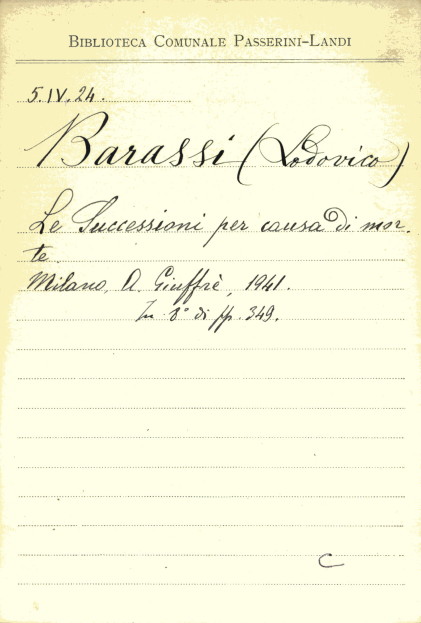 BIBLIOTECA COMUNALE PASSERINI-LANDI
5.IV.24.
Barassi (Lodovico)
Le Successioni per causa di mor.
te.
Milano, A. Giuffrè, 1941.
In 8° di pp. 349.
C